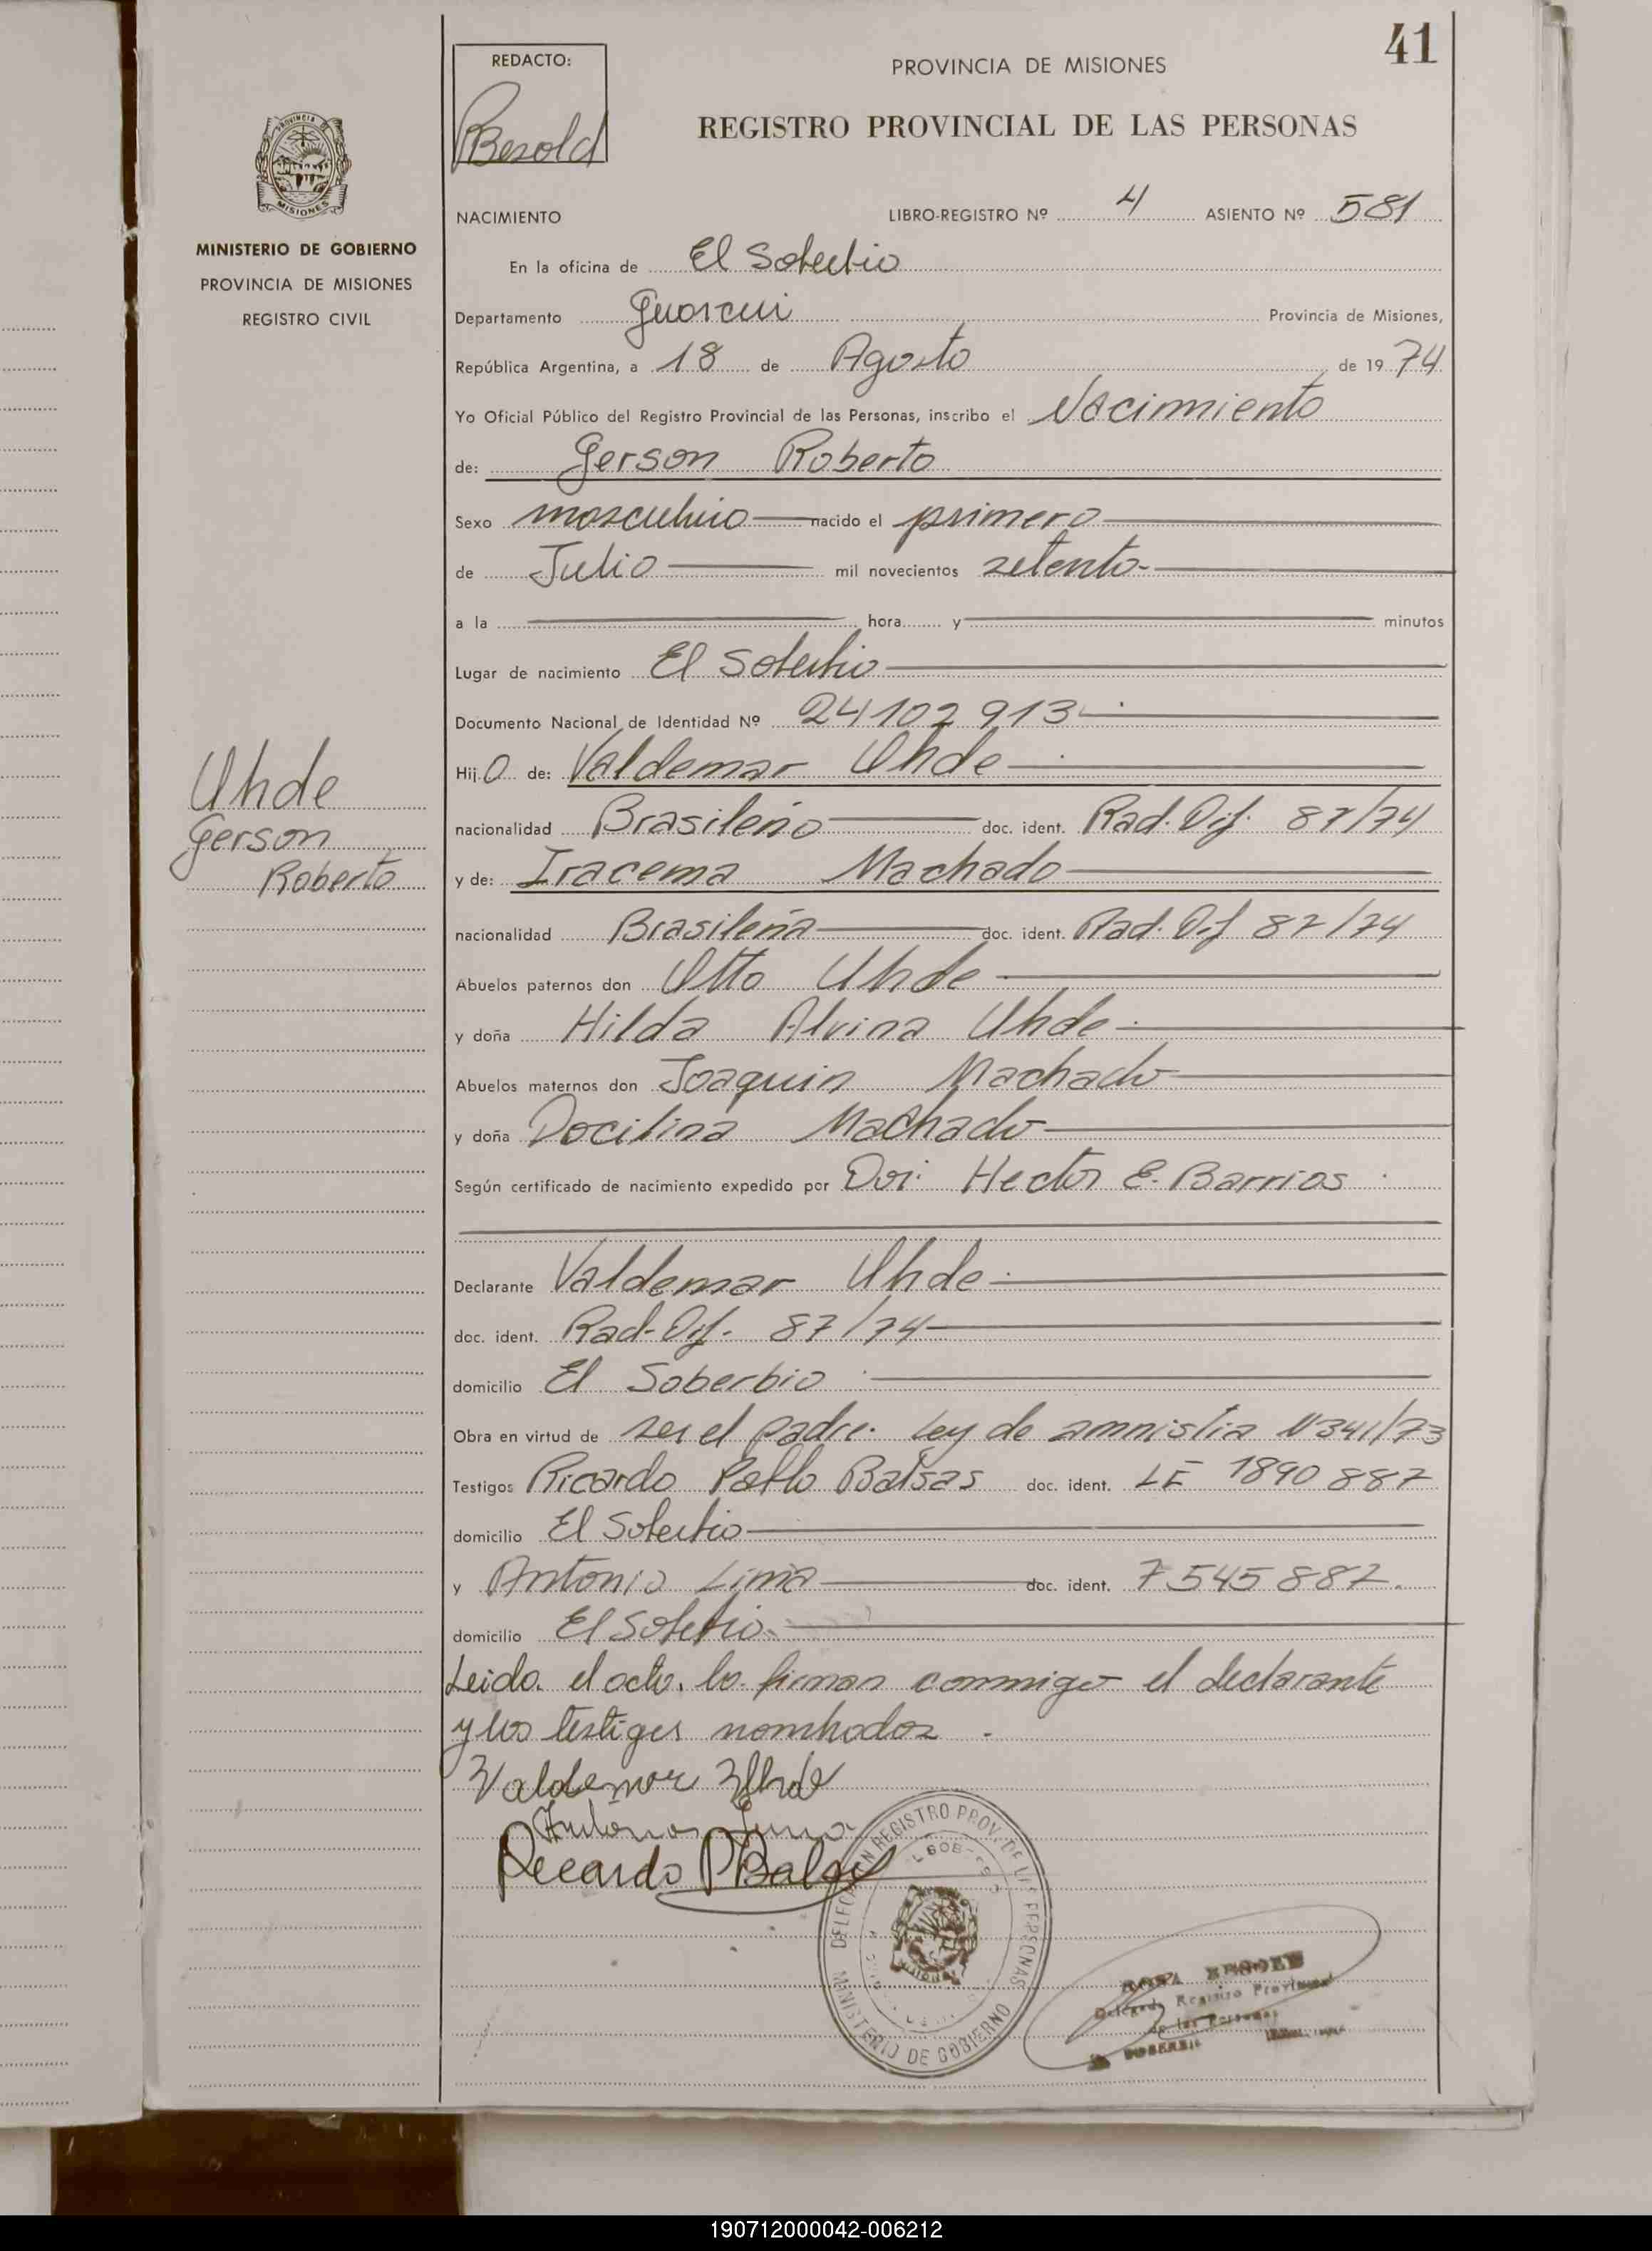 41
REDACTO:
Besold
PROVINCIA DE MISIONES
REGISTRO PROVINCIAL DE LAS PERSONAS
PROVINCIA DE
MISIONES
MINISTERIO DE GOBIERNO
PROVINCIA DE MISIONES
REGISTRO CIVIL
NACIMIENTO LIBRO-REGISTRO Nº 4 ASIENTO Nº 581
En la oficina de El Soberbio
Departamento Guarani Provincia de Misiones,
República Argentina, a 18 de Agosto de 1974
Yo Oficial Público del Registro Provincial de las Personas, inscribo el Nacimiento
de: Gerson Roberto
Sexo masculino nacido el primero
de Julio mil novecientos setenta
a la hora y minutos
Lugar de nacimiento El Soberbio
Documento Nacional de Identidad Nº 24102913
Uhde
Gerson
Roberto
Hijo de: Valdemar Uhde
nacionalidad Brasileño doc. ident. Rad. Dif. 87/74
y de: Iracema Machado
nacionalidad Brasileña doc. ident. Rad. Dif 87/74
Abuelos paternos don Otto Uhde
y doña Hilda Alvina Uhde
Abuelos maternos don Joaquin Machado
y doña Docilina Machado
Según certificado de nacimiento expedido por Hector E. Barrios
Declarante Valdemar Uhde
doc. ident. Rad. Dif. 87/74
domicilio El Soberbio
Obra en virtud de ser el padre. Ley de amnistia Nº 341/73
Testigos Ricardo Pablo Balsas doc. ident. LE 1890887
domicilio El Soberbio
y Antonio Lima doc. ident. 7545887.
domicilio El Soberbio
Leida el acta, la firman conmigo el declarante
y los testigos nombrados.
Valdemar Uhde
Antonio Lima
Ricardo P Balsas
DELEGACION REGISTRO PROV. DE LAS PERSONAS
MINISTERIO DE GOBIERNO
Delegada Registro Provincial
de las Personas
SOBERBIO
190712000042-006212